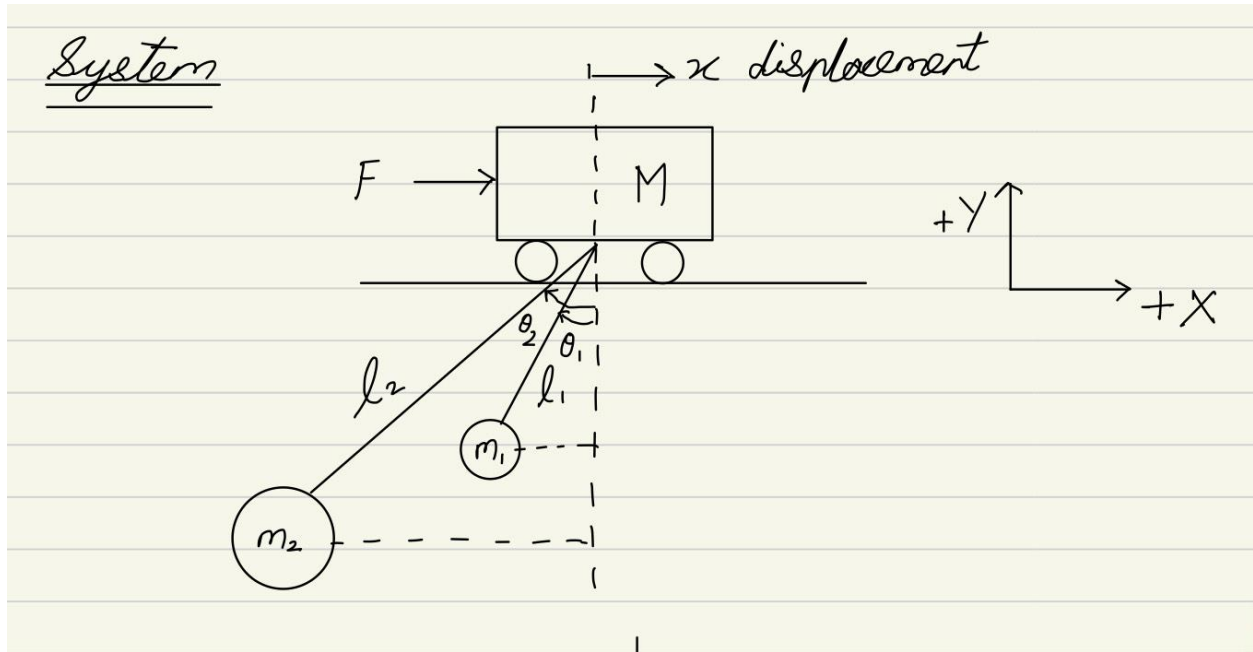 System
x displacement
F
M
+Y
+X
θ₂
θ₁
l₂
l₁
m₁
m₂